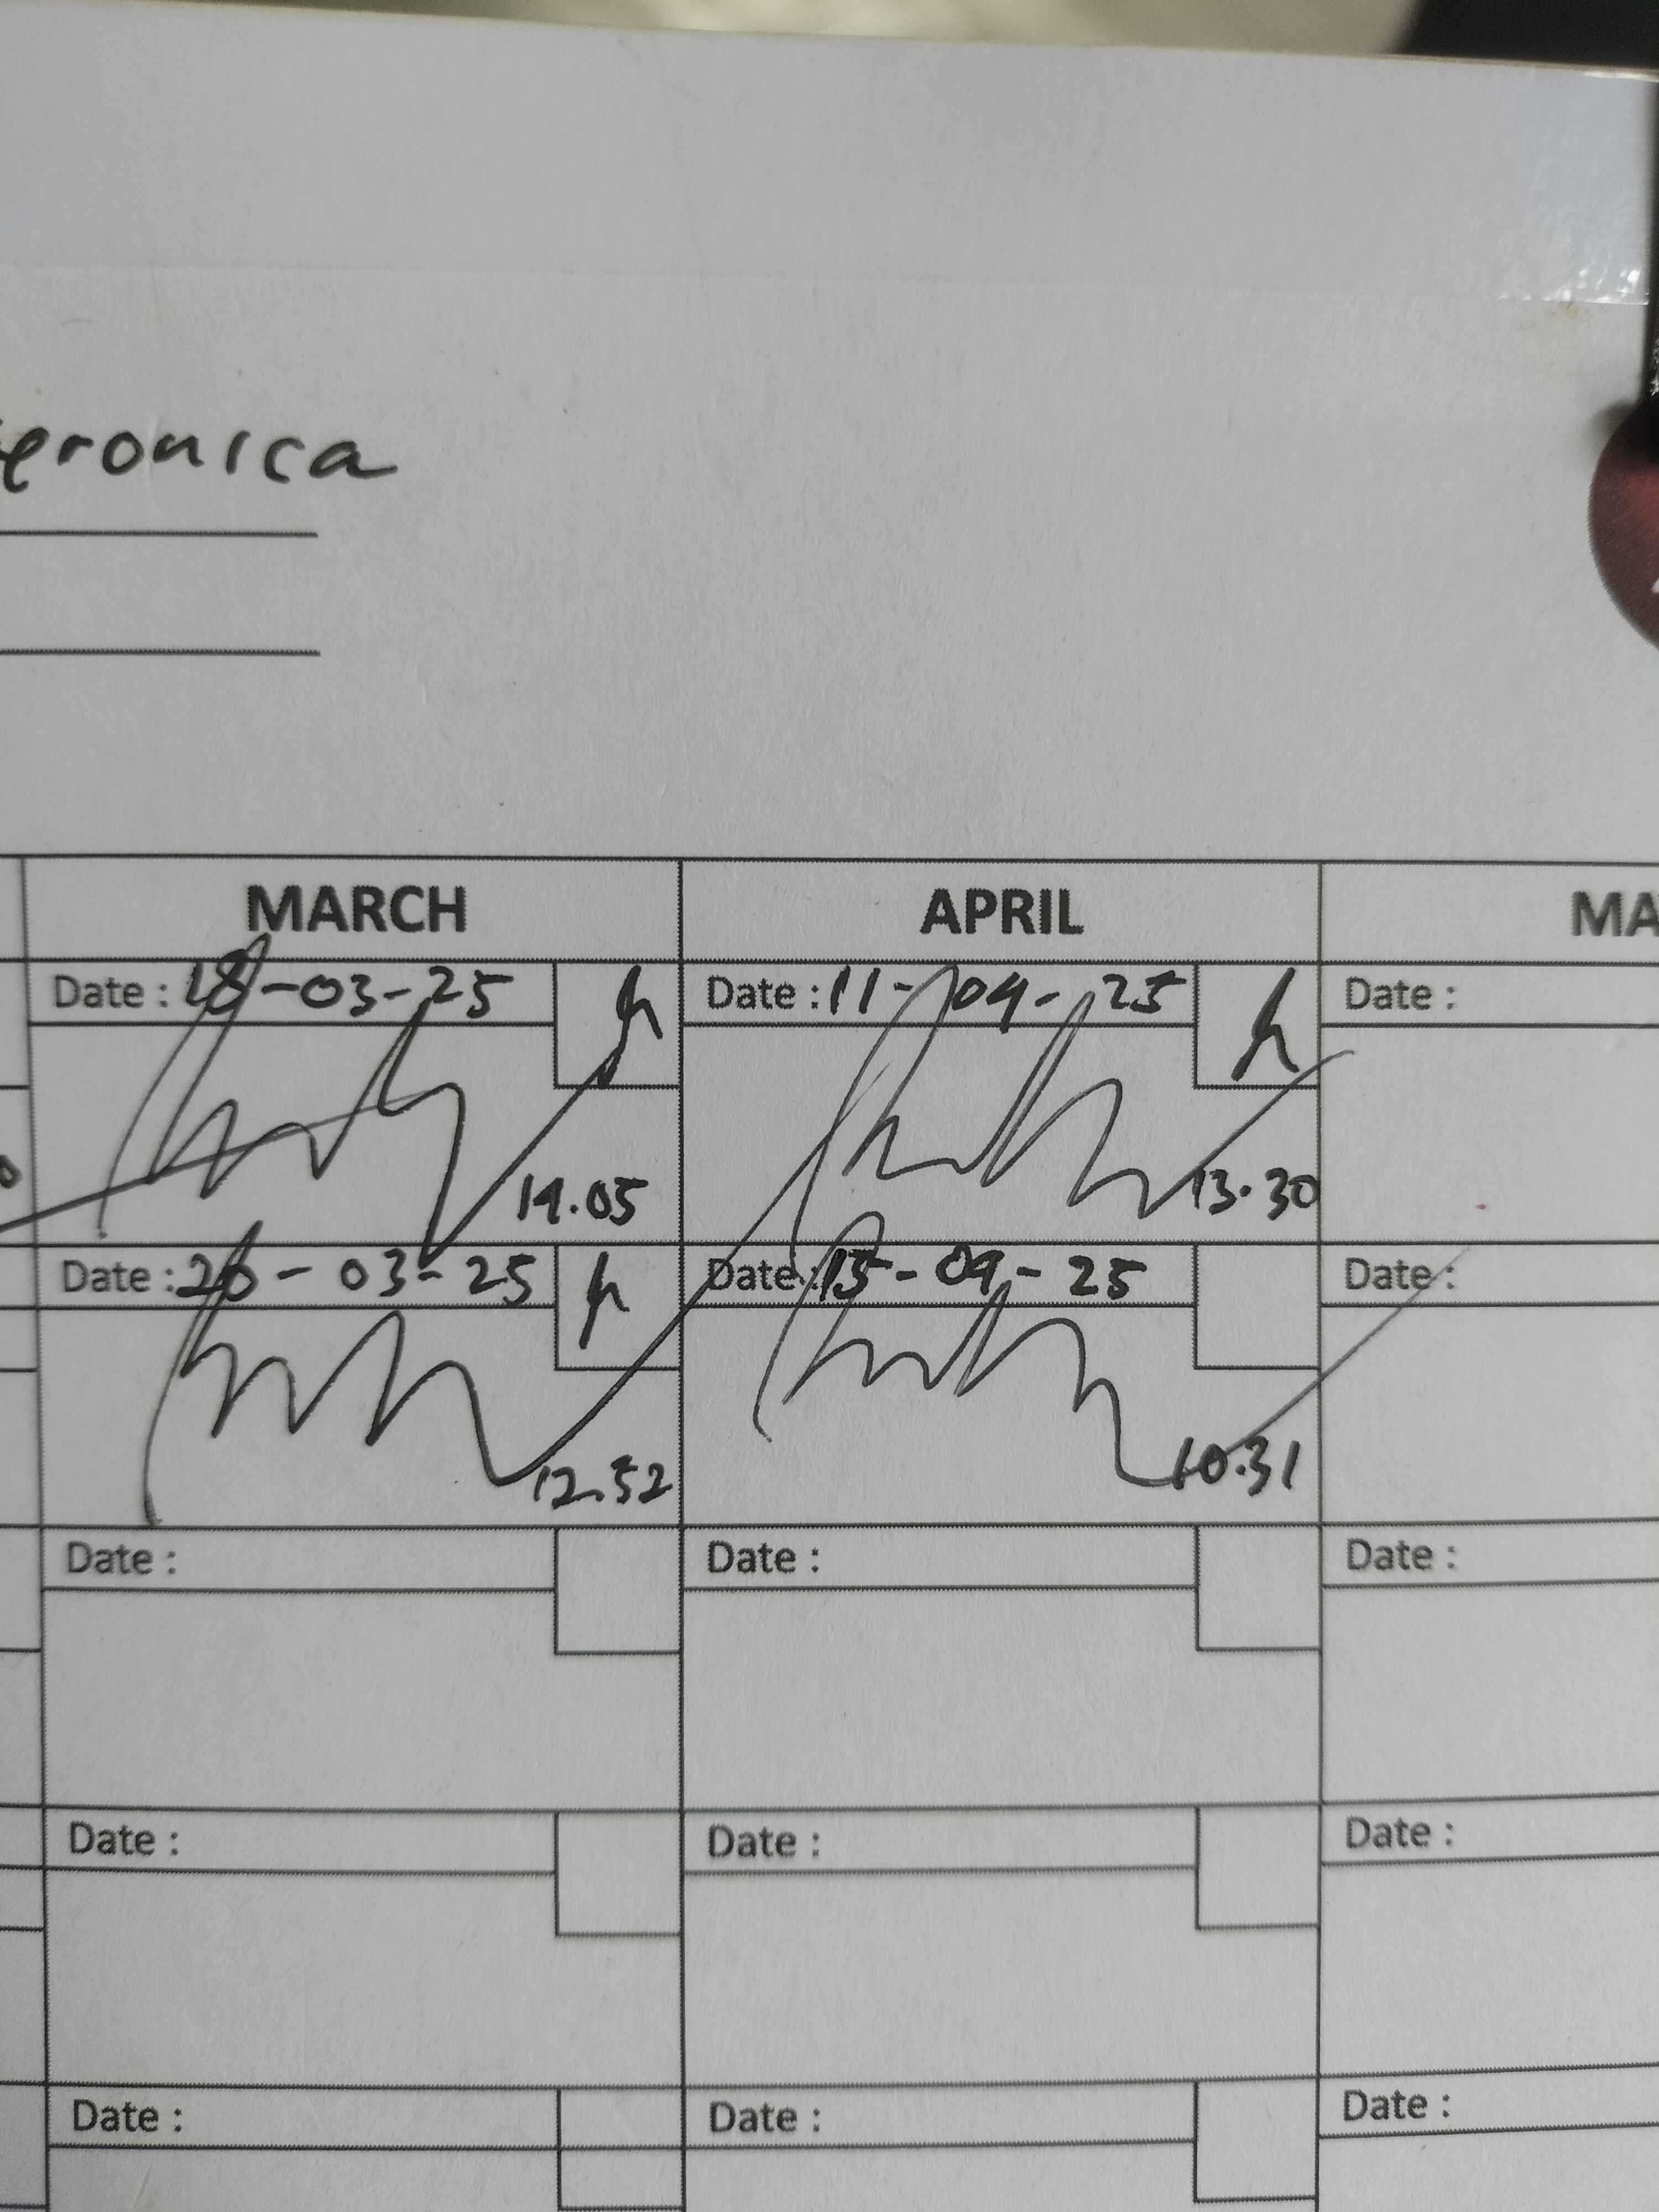 eronica
MARCH APRIL MA
Date : 18-03-25 Date : 11-04-25 Date :
14.05 13.30
Date : 26-03-25 Date : 15-04-25 Date :
12.52 10.31
Date : Date : Date :
Date : Date : Date :
Date : Date : Date :